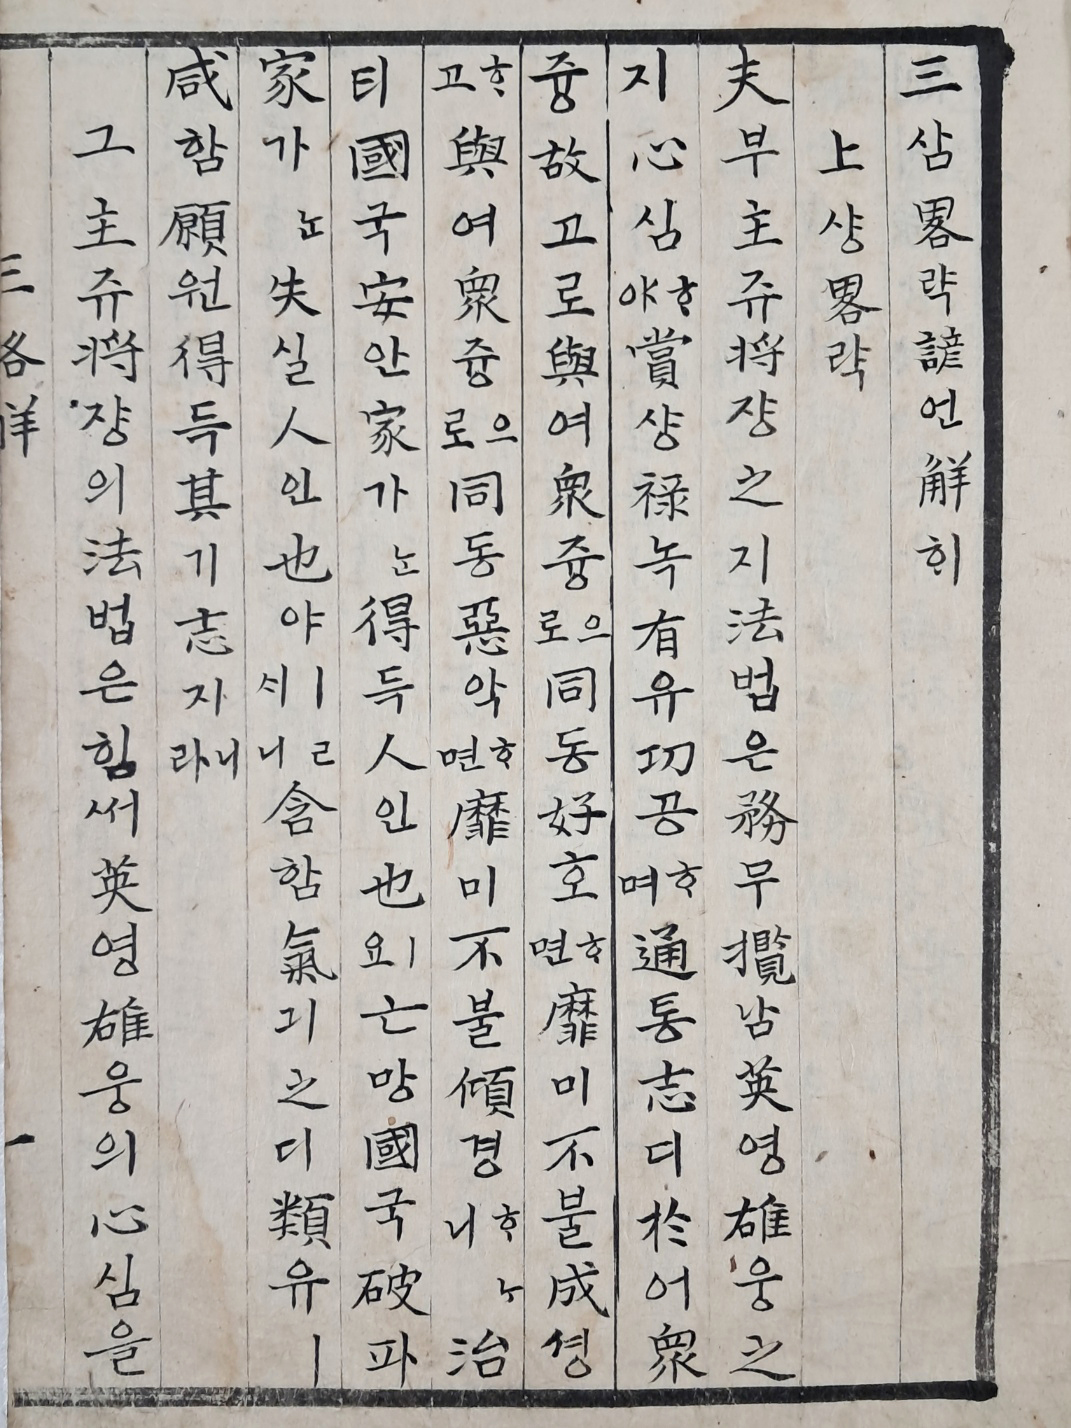 三삼畧략諺언解ᄒᆡ
上샹畧략
夫부主쥬將쟝之지法법은務무攬남英영雄웅之
지心심ᄒᆞ야賞샹祿녹有유功공ᄒᆞ며通통志디於어衆
즁故고로與여衆즁으로同동好호ᄒᆞ면靡미不불成셩
ᄒᆞ고與여衆즁으로同동惡악ᄒᆞ면靡미不불傾경ᄒᆞᄂᆞ니治
티國국安안家가ᄂᆞᆫ得득人인也야ㅣ오亡망國국破파
家가ᄂᆞᆫ失실人인也야ㅣ시ㄹ니含함氣긔之디類유ㅣ
咸함願원得득其기志지니라
그主쥬將쟝의法법은힘써英영雄웅의心심을
三
畧
解
一